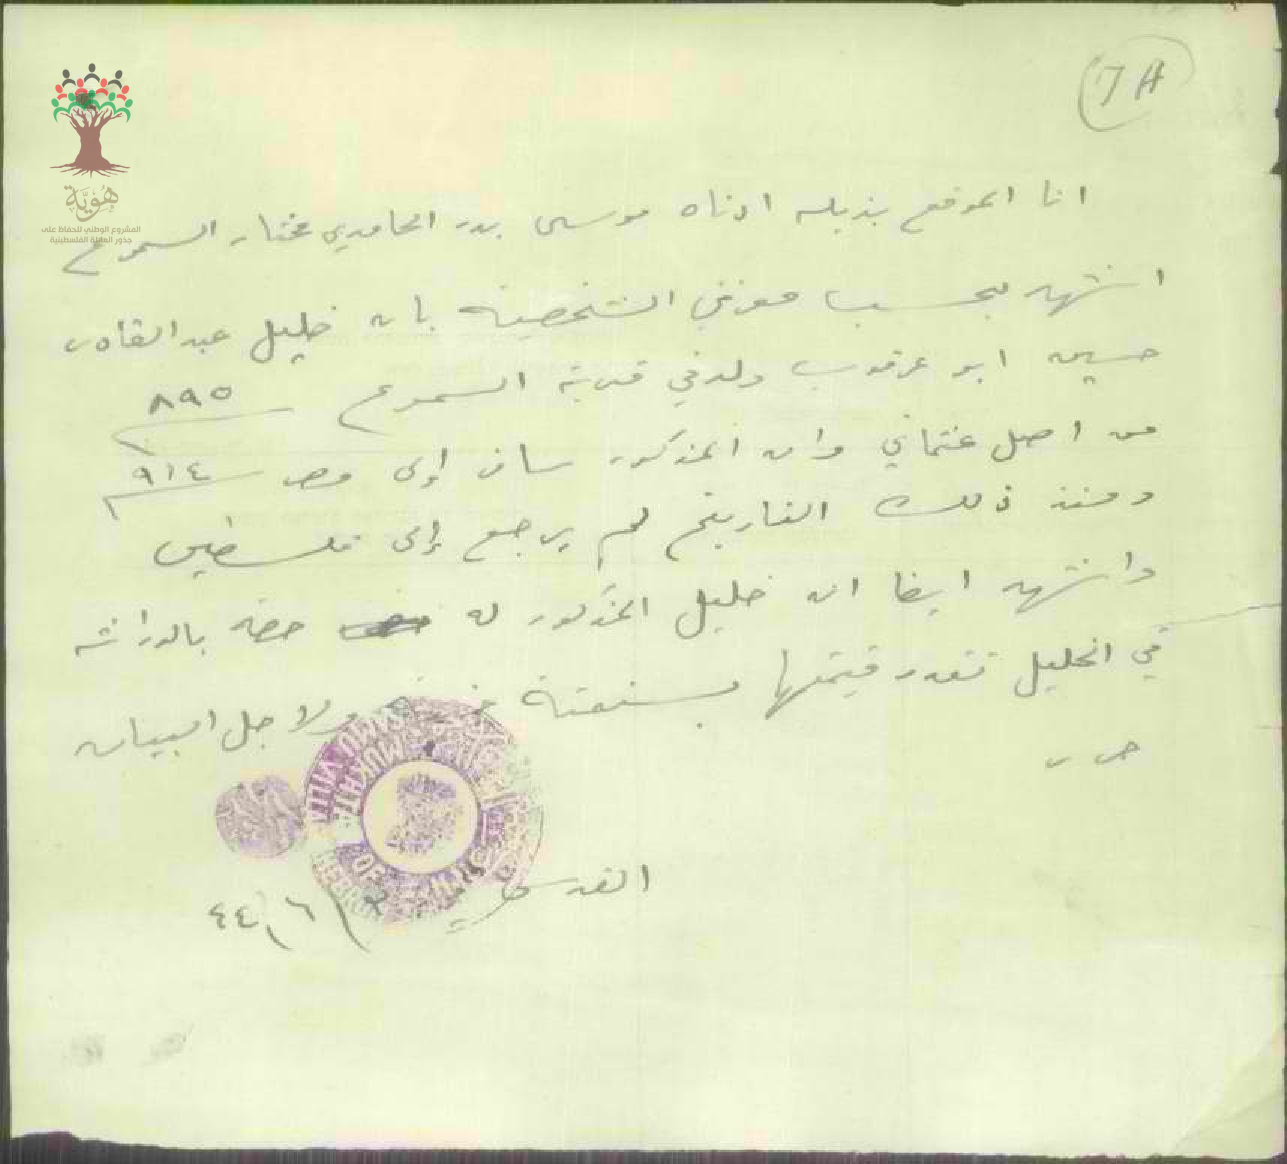 7A
هُوِيَّة
المشروع الوطني للحفاظ على
جذور العائلة الفلسطينية
انا الموقع بذيله ادناه موسى بدر الحامدي مختار السموع
اشهد بحسب معرفتي الشخصية بان خليل عبد القادر
حسين ابو عرقوب ولد في قرية السموع ٨٩٥
من اصل عثماني وان المذكور سافر إلى مصر ٩١٤
ومنذ ذلك التاريخ لم يرجع إلى فلسطين
واشهد ايضا ان خليل المذكور له حصة بالوراثه
في الخليل تقدر قيمتها بستمئة ولاجل البيان
حرر
القدس
٤٤/٦/
MUKHTAR
OF
HEBRON